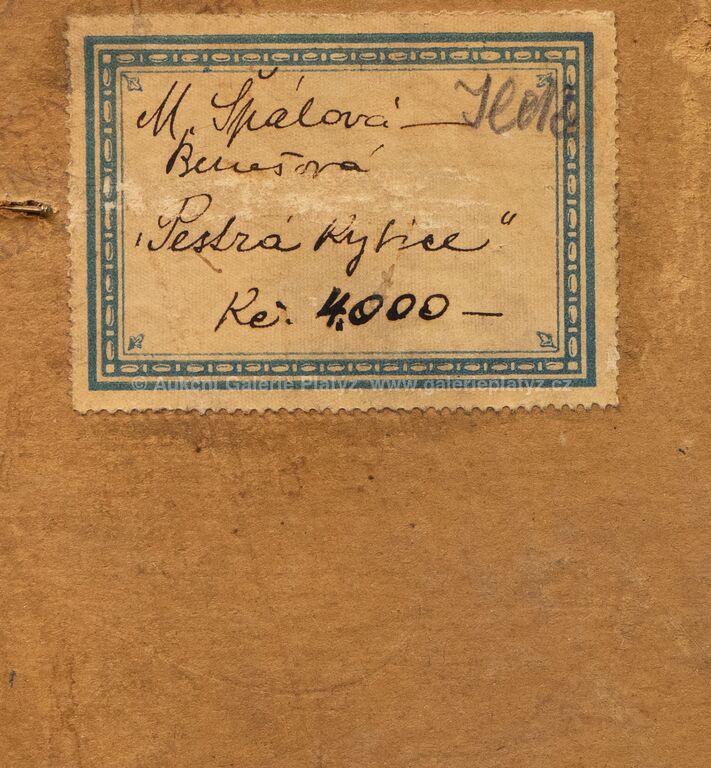 M. Špálová
Benešová
„Pestrá Kytice“
Kč. 4.000 —
© Aukční Galerie Platýz, www.galerieplatyz.cz